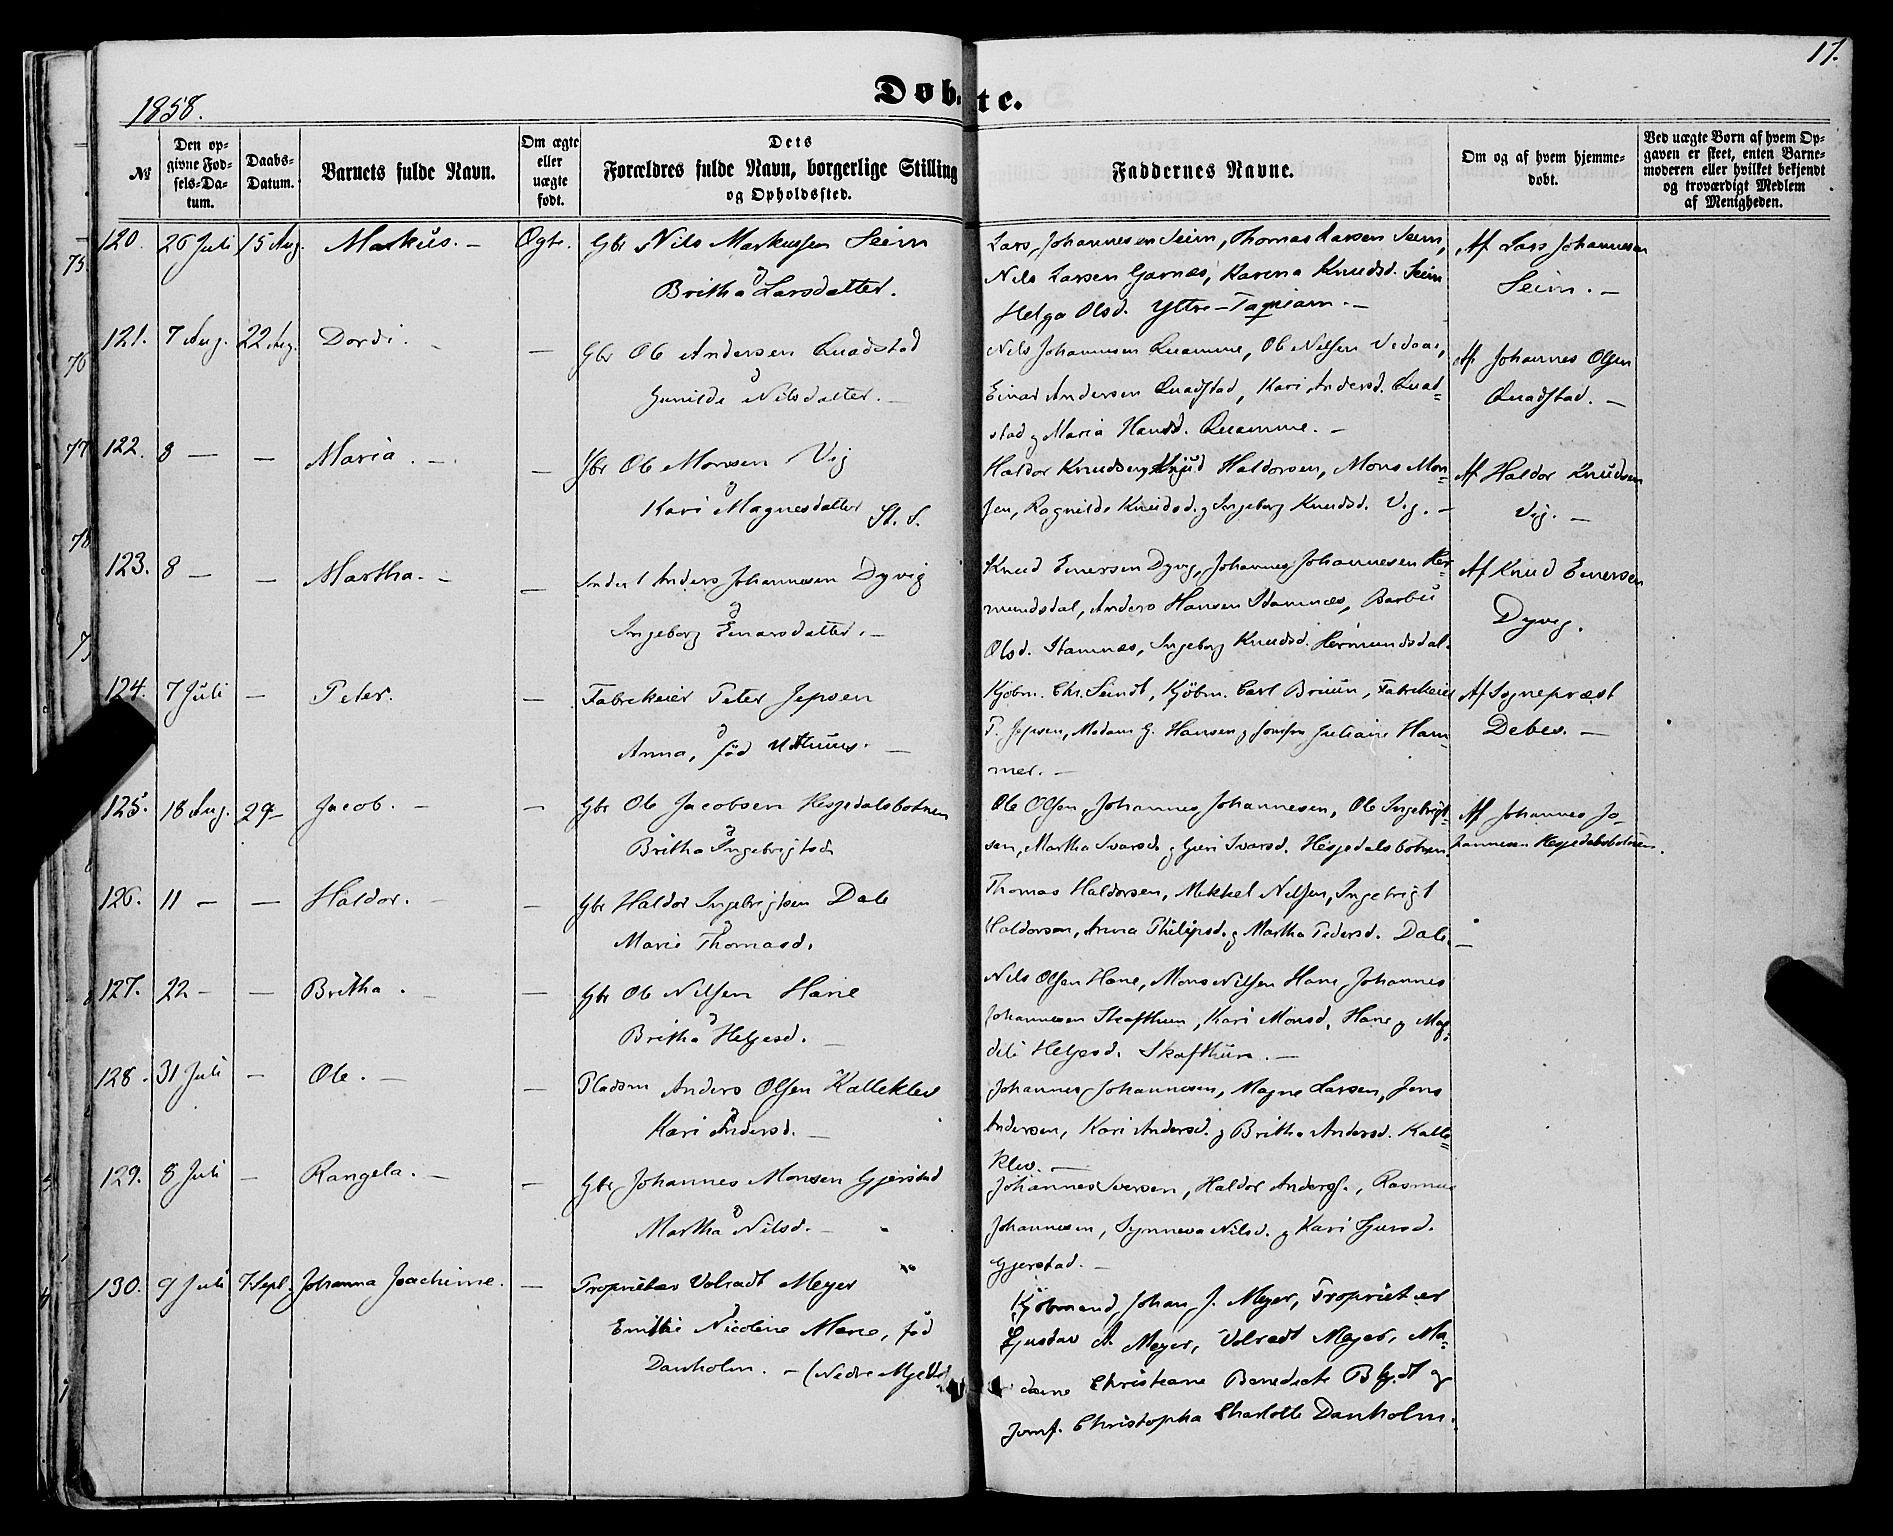 17.
Døbte.
1858.
№
Den opgivne Fødsels-Datum.
Daabs-Datum.
Barnets fulde Navn.
Om ægte eller uægte født.
Dets Forældres fulde Navn, borgerlige Stilling og Opholdssted.
Faddernes Navne.
Om og af hvem hjemmedøbt.
Ved uægte Børn af hvem Opgaven er skeet, enten Barnemoderen eller hvilket bekjendt og troværdigt Medlem af Menigheden.
120. 26 Juli 15 Aug. Markus. — Ægte. Gbr Nils Markussen Seim
Britha Larsdatter.
Lars Johannesen Seim, Thomas Larsen Seim,
Nils Larsen Garnæs, Karena Knudsd. Seim
Helga Olsd. Yttre-
Af Lars Johannesen
Seim. —
121. 7 Aug. 22 Aug. Dordi. — — Gbr Ole Andersen Quadstad
Gunilde Nilsdatter. —
Nils Johannesen Quamme, Ole Nilsen Vedaa,
Einar Andersen Quadstad, Kari Andersd. Quad=
stad og Maria Hansd. Quamme. —
Af Johannes Olsen
Quadstad. —
122. 8 — — Maria. — — Gbr Ole Monsen Vig
Kari Magnesdatter St. S.
Haldor Knudsen, Knud Haldorsen, Mons Mon=
sen, Ragnilde Knudsd. og Ingeborg Knudsd. Vig. —
Af Haldor Knudsen
Vig. —
123. 8 — — Martha. — — Inderst Anders Johannesen Dyvig
Ingeborg Einarsdatter. —
Knud Einersen Dyvig, Johannes Johannesen Her=
mundsdal, Anders Hansen Stamnæs, Barbu
Olsd. Stamnæs, Ingeborg Knudsd. Hermundsdal.
Af Knud Enersen
Dyvig.
124. 7 Juli — Peter. — Fabrikeier Peter Jepsen
Anna, fød —
Kjøbm. Chr. Sundt, Kjøbm. Carl Bruun, Fabrikeier
P. Jepsen, Madam G. Hansen og Jomfru Juliane Ham=
mer. —
Af Sognepræst
Debes. —
125. 18 Aug. 29 — Jacob. — — Gbr Ole Jacobsen Hesjedalsbotnen
Britha Ingebrigtsd.
Ole Olsen, Johannes Johannesen, Ole Ingebrigt=
sen, Martha Ivarsd. og Guri Ivarsd. Hesjedalsbotnen.
Af Johannes Jo-
hannesen Hesjedalsbotnen.
126. 11 — — Haldor. — — Gbr Haldor Ingebrigtsen Dale
Marie Thomasd.
Thomas Haldorsen, Mikkel Nilsen, Ingebrigt
Haldorsen, Anna Philipsd. og Martha Pedersd. Dale. —
127. 22 — — Britha. — — Gbr Ole Nilsen Hane
Britha Helgesd. —
Nils Olsen Hane, Mons Nilsen Hane, Johannes
Johannesen Skafthun, Kari Monsd. Hane og Mag=
deli Helgesd. Skafthun. —
128. 31 Juli — Ole. — — Pladsm Anders Olsen Kalleklev
Kari Andersd. —
Johannes Johannesen, Magne Larsen, Jens
Andersen, Kari Andersd. og Britha Andersd. Kalle=
klev. —
129. 8 Juli — Rangela. — — Gbr Johannes Monsen Gjerstad
Martha Nilsd. —
Johannes Iversen, Haldor Anders., Rasmus
Johannesen, Synneva Nilsd. og Kari Sjursd.
Gjerstad. —
130. 9 Juli 7 Sept. Johanna Joachime. — Proprietær Volradt Meyer
Emilie Nicoline Marie, fød
Danholm. — (Nedre
Kjøbmand Johan J. Meyer, Proprietær
Gustav A. Meyer, Volradt Meyer, Ma=
dame Christiane Benedicte Blydt og
Jomf. Christopha Charlotte Danholm.